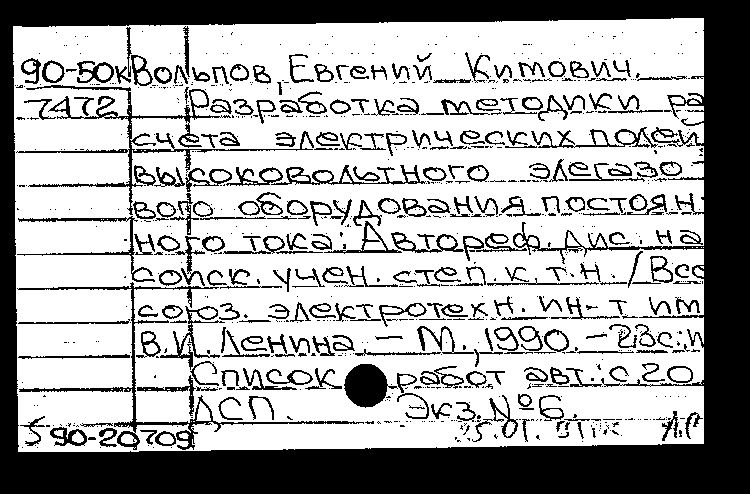 90-50к Вольпов, Евгений Кимович.
7472 Разработка методики ра
счета электрических полей
высоковольтного элегазо-
вого оборудования постоян-
ного тока: Автореф. дис. на
соиск. учен. степ. к.т.н. / Всес
союз. электротехн. ин-т им
В.И. Ленина. – М., 1990. – 23с.: и
Список работ авт.: с. 20.
ДСП. Экз. №6.
5 90-20709 25.01.